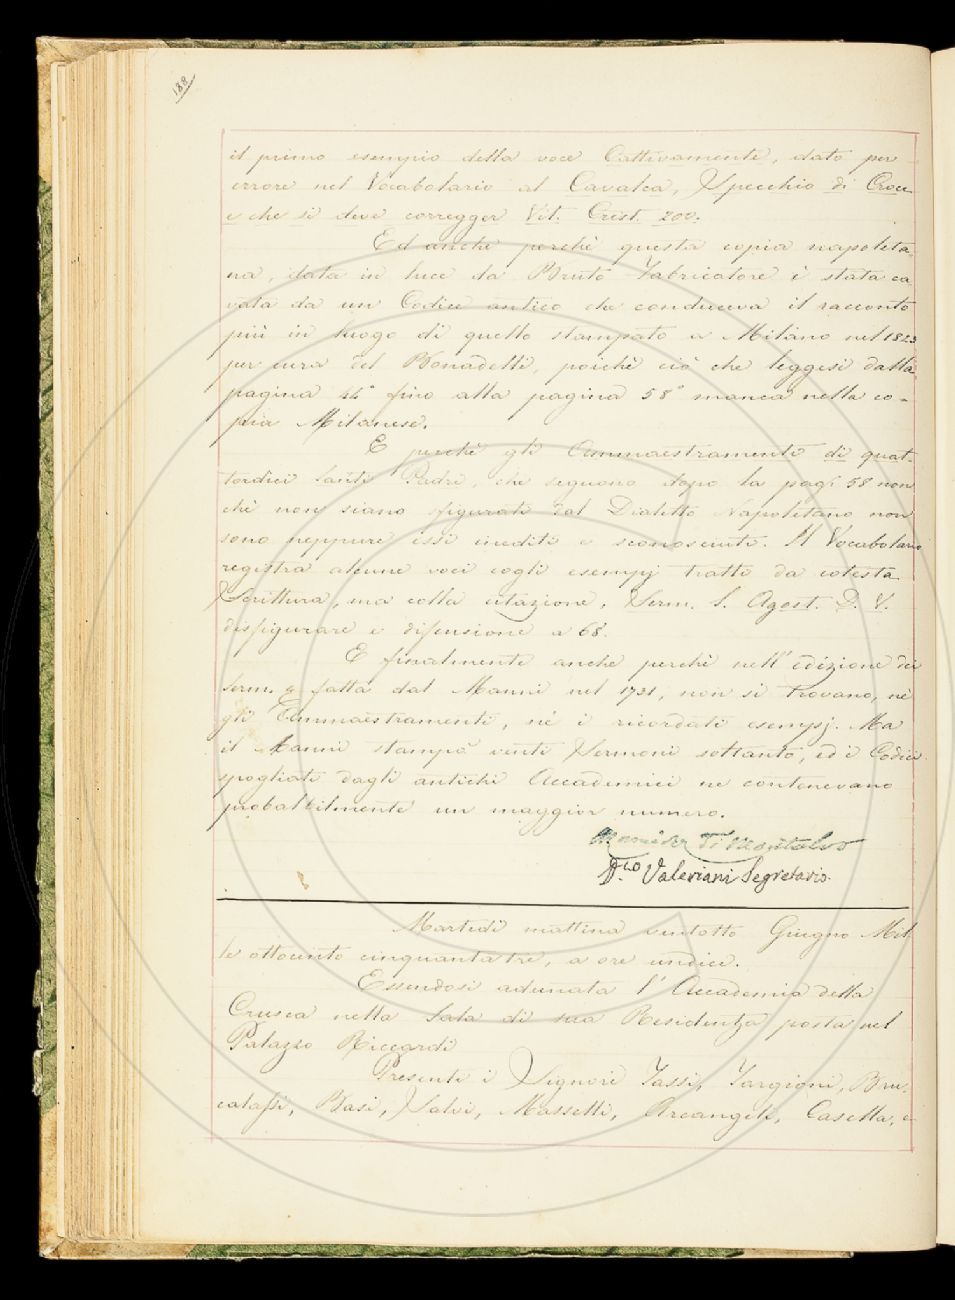 188
il primo esempio della voce Cattivamente, dato per
errore nel Vocabolario al Cavalca, Specchio di Croce
e che si deve corregger Vit. Crist. 200.
Ed anche perchè questa copia napoleta-
na, data in luce da Bruto Fabricatore è stata ca
vata da un Codice antico che conduceva il racconto
più in luogo di quello stampato a Milano nel 1823
per cura del Bonadelli, poichè ciò che leggesi dalla
pagina 44ª fino alla pagina 58ª manca nella co-
pia Milanese.
E perchè gli Ammaestramenti di quat-
tordici Santi Padri, che seguono dopo la pag. 58 non
chè non siano sfigurati dal Dialetto Napoletano non
sono neppure essi inediti e sconosciuti. Il Vocabolario
registra alcune voci cogli esempj tratti da cotesta
Scrittura, ma colla citazione, Serm. S. Agost. D. V.
disfigurare e difensione a 68.
E finalmente anche perchè nell' edizione dei
Serm. fatta dal Manni nel 1731, non si trovano, nè
gli Ammaestramenti, nè i ricordati esempj. Ma
il Manni stampò venti Sermoni soltanto, ed i Codici
spogliati dagli antichi Accademici ne contenevano
probabilmente un maggior numero.
Di Montalvo
D.co Valeriani Segretario.
Martedì mattina ventotto Giugno Mil
le ottocento cinquantatre, a ore undici.
Essendosi adunata l' Accademia della
Crusca nella Sala di sua Residenza posta nel
Palazzo Riccardi
Presenti i Signori Tassi, Targioni, Bru-
calassi, Basi, Salvi, Masselli, Arcangeli, Casella, e